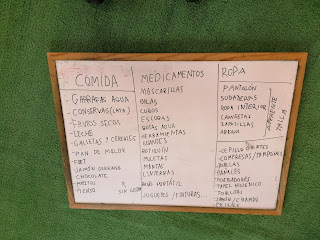 COMIDA
- GARRAFAS AGUA
- CONSERVAS (LATA)
- FRUTOS SECOS
- LECHE
- GALLETAS Y CEREALES
- PAN DE MOLDE
- FUET
- JAMÓN SERRANO
- CHOCOLATE
- PIENSO
MEDICAMENTOS
MASCARILLAS
PALAS
CUBOS
ESCOBAS
BOTAS AGUA
HERRAMIENTAS
GUANTES
BOTIQUÍN
MULETAS
MANTAS
LINTERNAS
PORTÁTIL
JUGUETES / PINTURAS...
ROPA
PANTALÓN
SUDADERAS
ROPA INTERIOR
CAMISETAS
ZAPATILLAS
ABRIGO
DIFERENTE TALLAS
- CEPILLO DIENTES
- COMPRESAS / TAMPONES
TOALLAS
PAÑALES
PAPEL HIGIÉNICO
TOALLITAS
JABÓN / CHAMPÚ